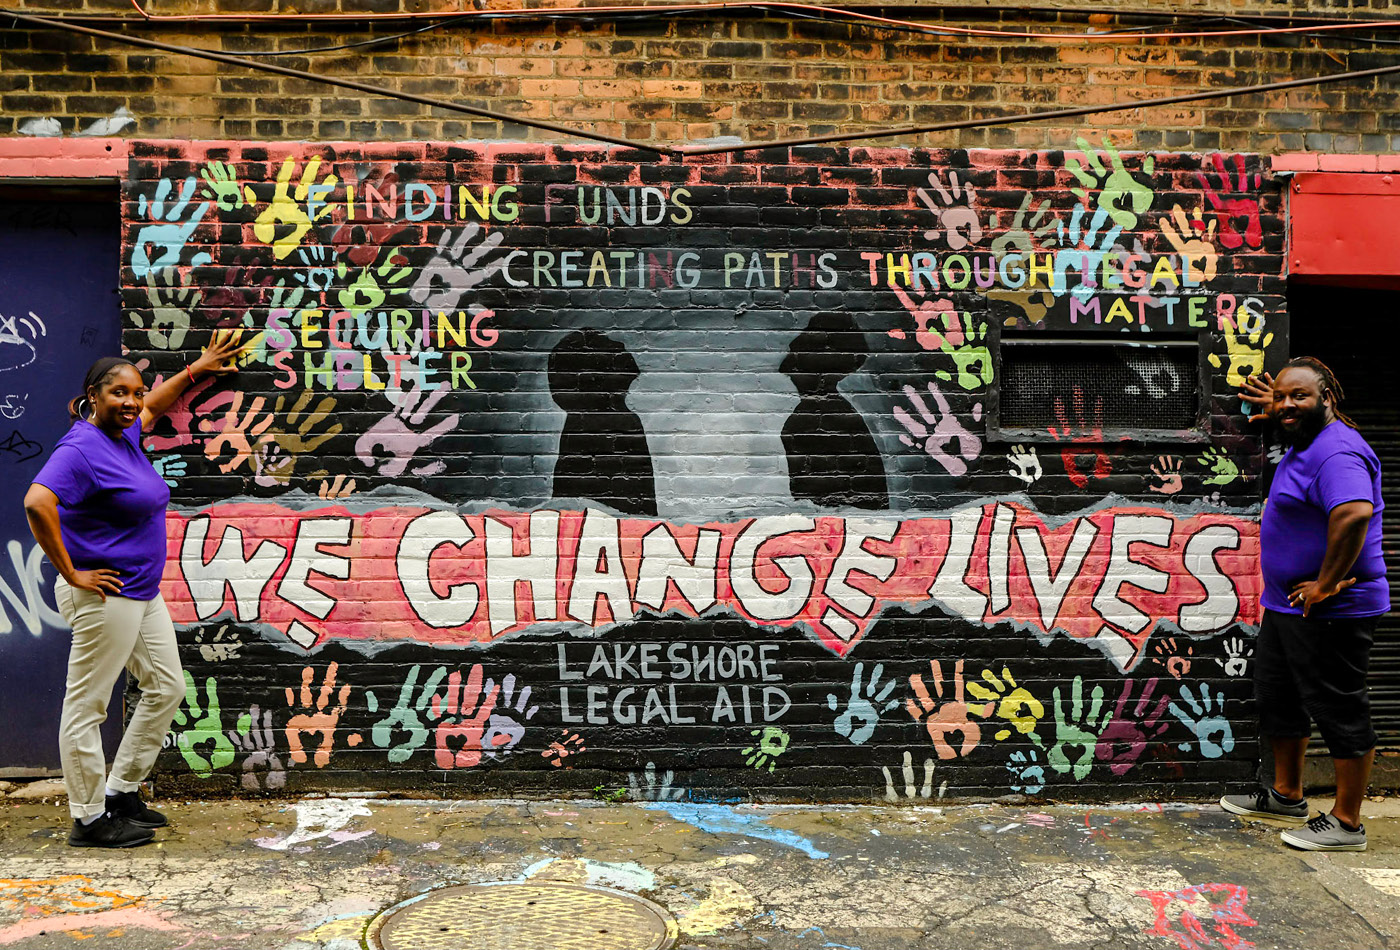 FINDING FUNDS
CREATING PATHS THROUGH LEGAL
MATTERS
SECURING
SHELTER
WE CHANGE LIVES
LAKESHORE
LEGAL AID